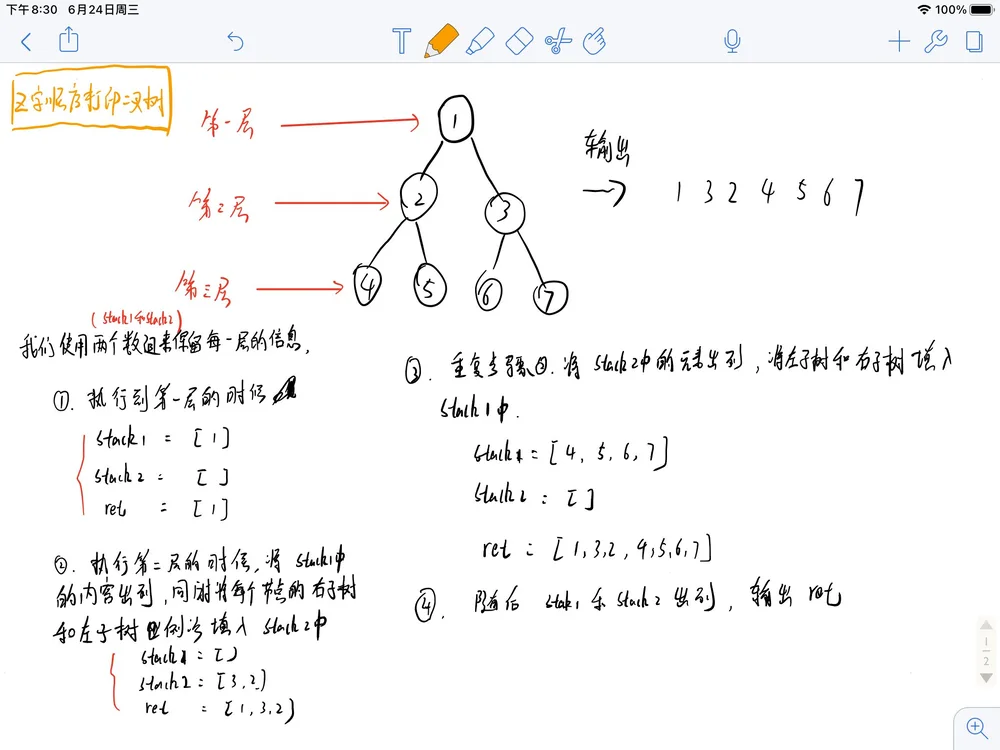 下午8:30 6月24日周三
100%
T
Z字顺序打印二叉树
第一层
1
输出
第二层
2
3
1 3 2 4 5 6 7
第三层
4
5
6
7
(stack1和stack2)
我们使用两个数组来保留每一层的信息,
①. 执行到第一层的时候
stack1 = [1]
stack2 = [ ]
ret = [1]
②. 执行第二层的时候, 将 stack1中
的内容出列, 同时将每个节点的右子树
和左子树 依次 填入 stack2中
stack1 = []
stack2 = [3,2]
ret = [1,3,2]
③. 重复步骤②. 将 stack2中的元素出列, 将左子树和右子树填入
stack1中.
stack1 = [4, 5, 6, 7]
stack2 = []
ret = [1,3,2, 4,5,6,7]
④. 随后 stak1 和 stack2 出列, 输出 ret
1
2